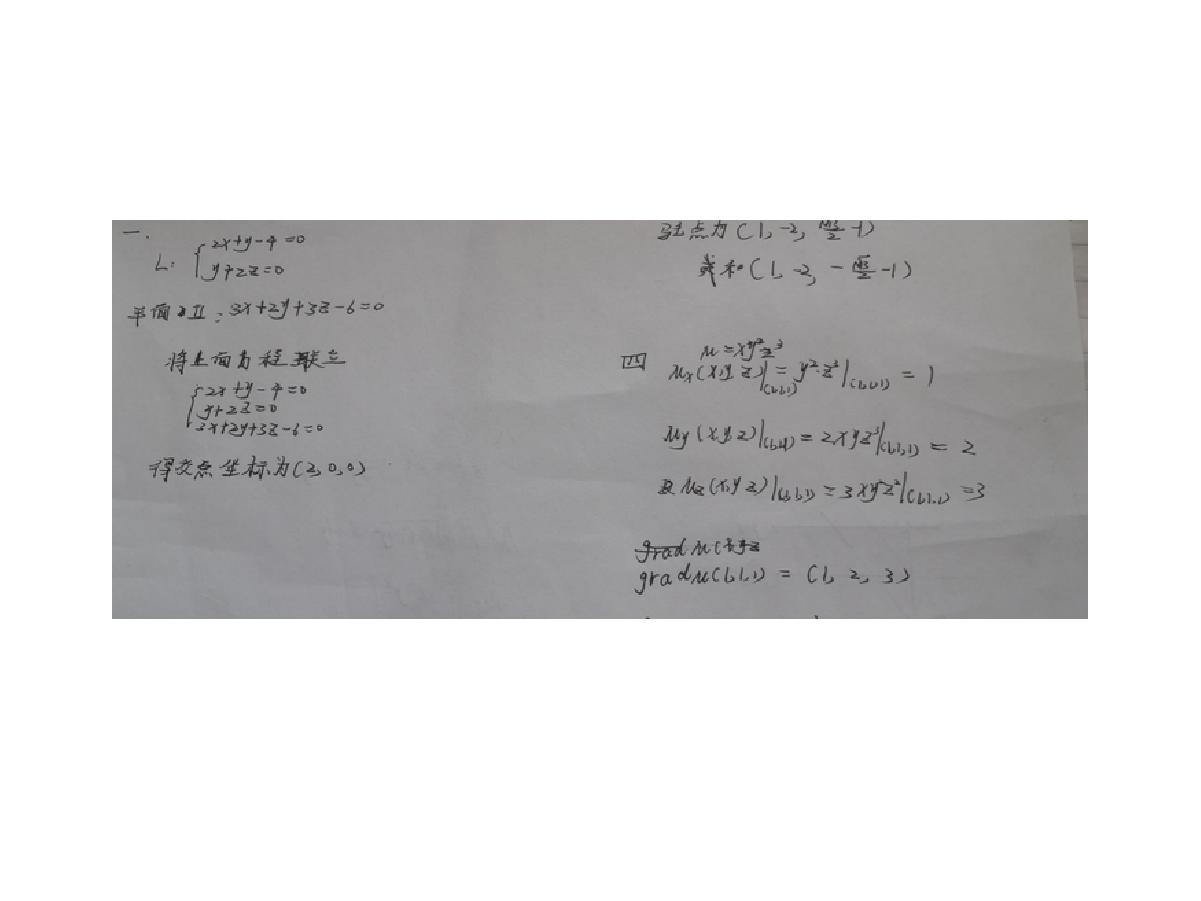 一.
L: { 2x+y-4=0
y+2z=0
平面π: 3x+2y+3z-6=0
将上面方程联立
{ 2x+y-4=0
y+2z=0
3x+2y+3z-6=0
得交点坐标为(2,0,0)
驻点为(1,-2,
-1)
和(1,-2,-
-1)
四
u=xy²z³
u_x(x,y,z)|(1,1,1) = y²·z³|(1,1,1) = 1
u_y(x,y,z)|(1,1,1) = 2xyz³|(1,1,1) = 2
u_z(x,y,z)|(1,1,1) = 3xy²z²|(1,1,1) = 3
grad u(1,1,1) = (1, 2, 3)